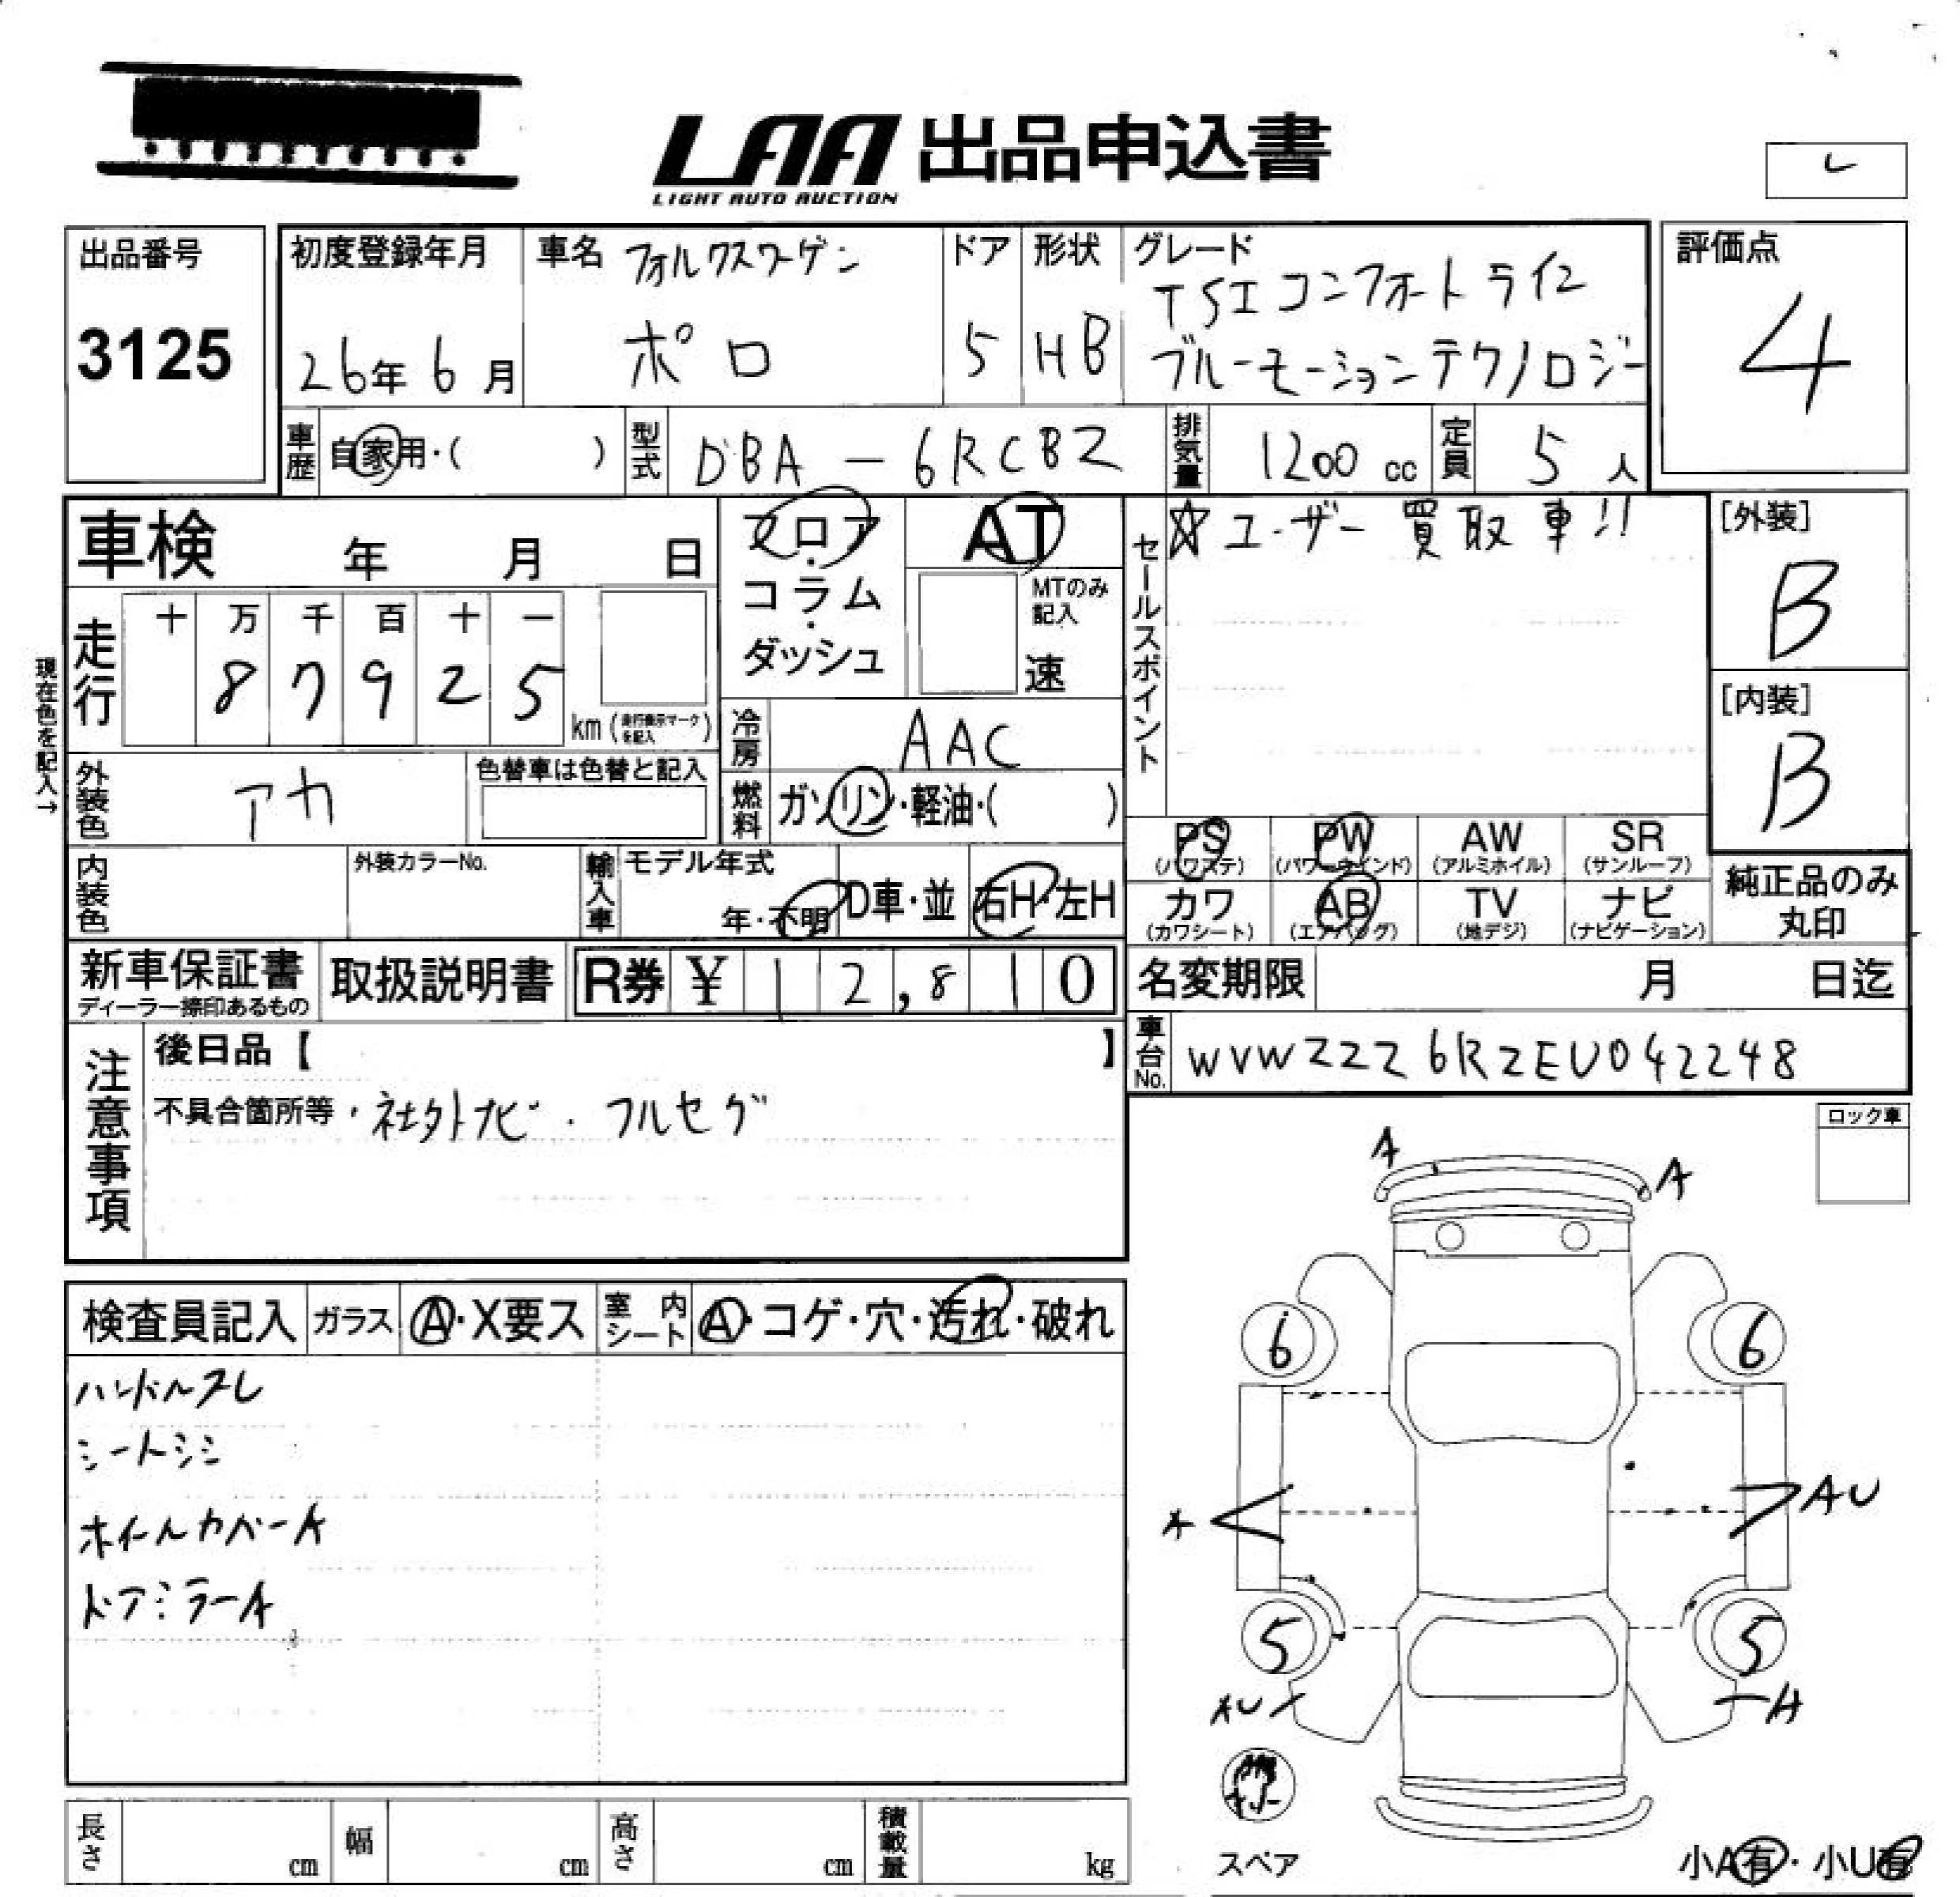 LAA 出品申込書
LIGHT AUTO AUCTION
レ
出品番号
3125
初度登録年月
26年 6月
車名 フォルクスワーゲン
ポロ
ドア
5
形状
HB
グレード
TSI コンフォートライン
ブルーモーションテクノロジー
評価点
4
車歴 自家用・( )
型式 DBA - 6RCBZ
排気量 1200 cc
定員 5 人
車検 年 月 日
走行
十 万 千 百 十 一
8 7 9 2 5
km (走行表示マークを記入)
現在色を記入→
外装色 アカ
色替車は色替と記入
内装色
外装カラーNo.
フロア・コラム・ダッシュ
AT
MTのみ記入
速
冷房 AAC
燃料 ガソリン・軽油・( )
輸入車 モデル年式
年・不明
D車・並
右H・左H
セールスポイント
☆ユーザー買取車!!
[外装]
B
[内装]
B
PS AW PW SR
(パワステ) (パワーウインド) (アルミホイル) (サンルーフ)
カワ AB TV ナビ
(カワシート) (エアバッグ) (地デジ) (ナビゲーション)
純正品のみ
丸印
新車保証書
ディーラー捺印あるもの
取扱説明書
R券 ¥ 1 2,8 1 0
名変期限 月 日迄
車台No. WVWZZZ6RZEU042248
注意事項
後日品【 】
不具合箇所等・社外ナビ・フルセグ
ロック車
検査員記入
ガラス A・X要ス
室内シート A・コゲ・穴・汚れ・破れ
ハンドルスレ
シートシミ
ホイールカバーA
ドアミラーA
A
A
6 6
A
AU
5 5
AU
A
スペア
小A有・小U有
長さ cm
幅 cm
高さ cm
積載量 kg